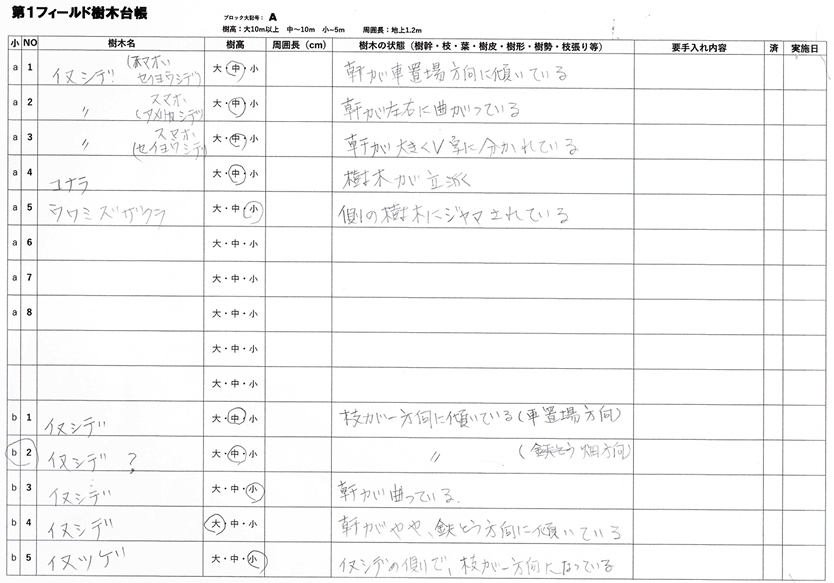 第1フィールド樹木台帳
ブロック大記号: A
樹高:大10m以上 中〜10m 小~5m 周囲長:地上1.2m
小 NO 樹木名 樹高 周囲長(cm) 樹木の状態(樹幹・枝・葉・樹皮・樹形・樹勢・枝張り等) 要手入れ内容 済 実施日
a 1 イヌシデ? (スマホ、セイヨウシデ) 大・中・小 幹が車置場方向に傾いている
a 2 〃 スマホ (アメリカシデ) 大・中・小 幹が左右に曲がっている
a 3 〃 スマホ、(セイヨウシデ) 大・中・小 幹が大きくV字に分かれている
a 4 コナラ 大・中・小 樹木が立派
a 5 ウワミズザクラ 大・中・小 側の樹木にジャマされている
a 6 大・中・小
a 7 大・中・小
a 8 大・中・小
大・中・小
大・中・小
b 1 イヌシデ 大・中・小 枝が一方向に傾いている(車置場方向)
b 2 イヌシデ ? 大・中・小 〃 (鉄とう 畑方向)
b 3 イヌシデ 大・中・小 幹が曲っている.
b 4 イヌシデ 大・中・小 幹がやや、鉄とう方向に傾いている
b 5 イヌツゲ 大・中・小 イヌシデの側で、枝が一方向になっている